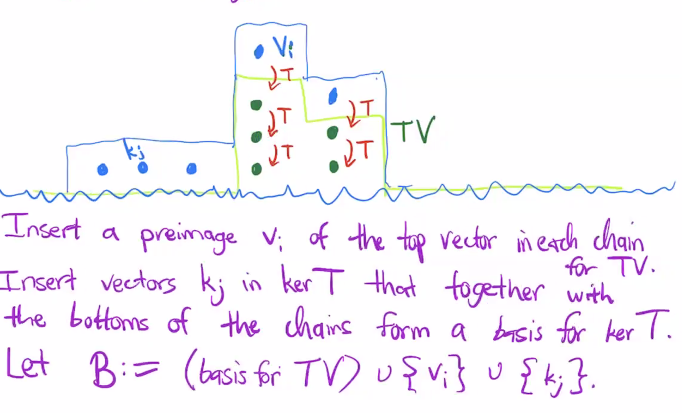 Vi
T
T
T
T
T
TV
kj
Insert a preimage vi of the top vector in each chain
for TV.
Insert vectors kj in ker T that together with
the bottoms of the chains form a basis for ker T.
Let B := (basis for TV) ∪ {vi} ∪ {kj}.